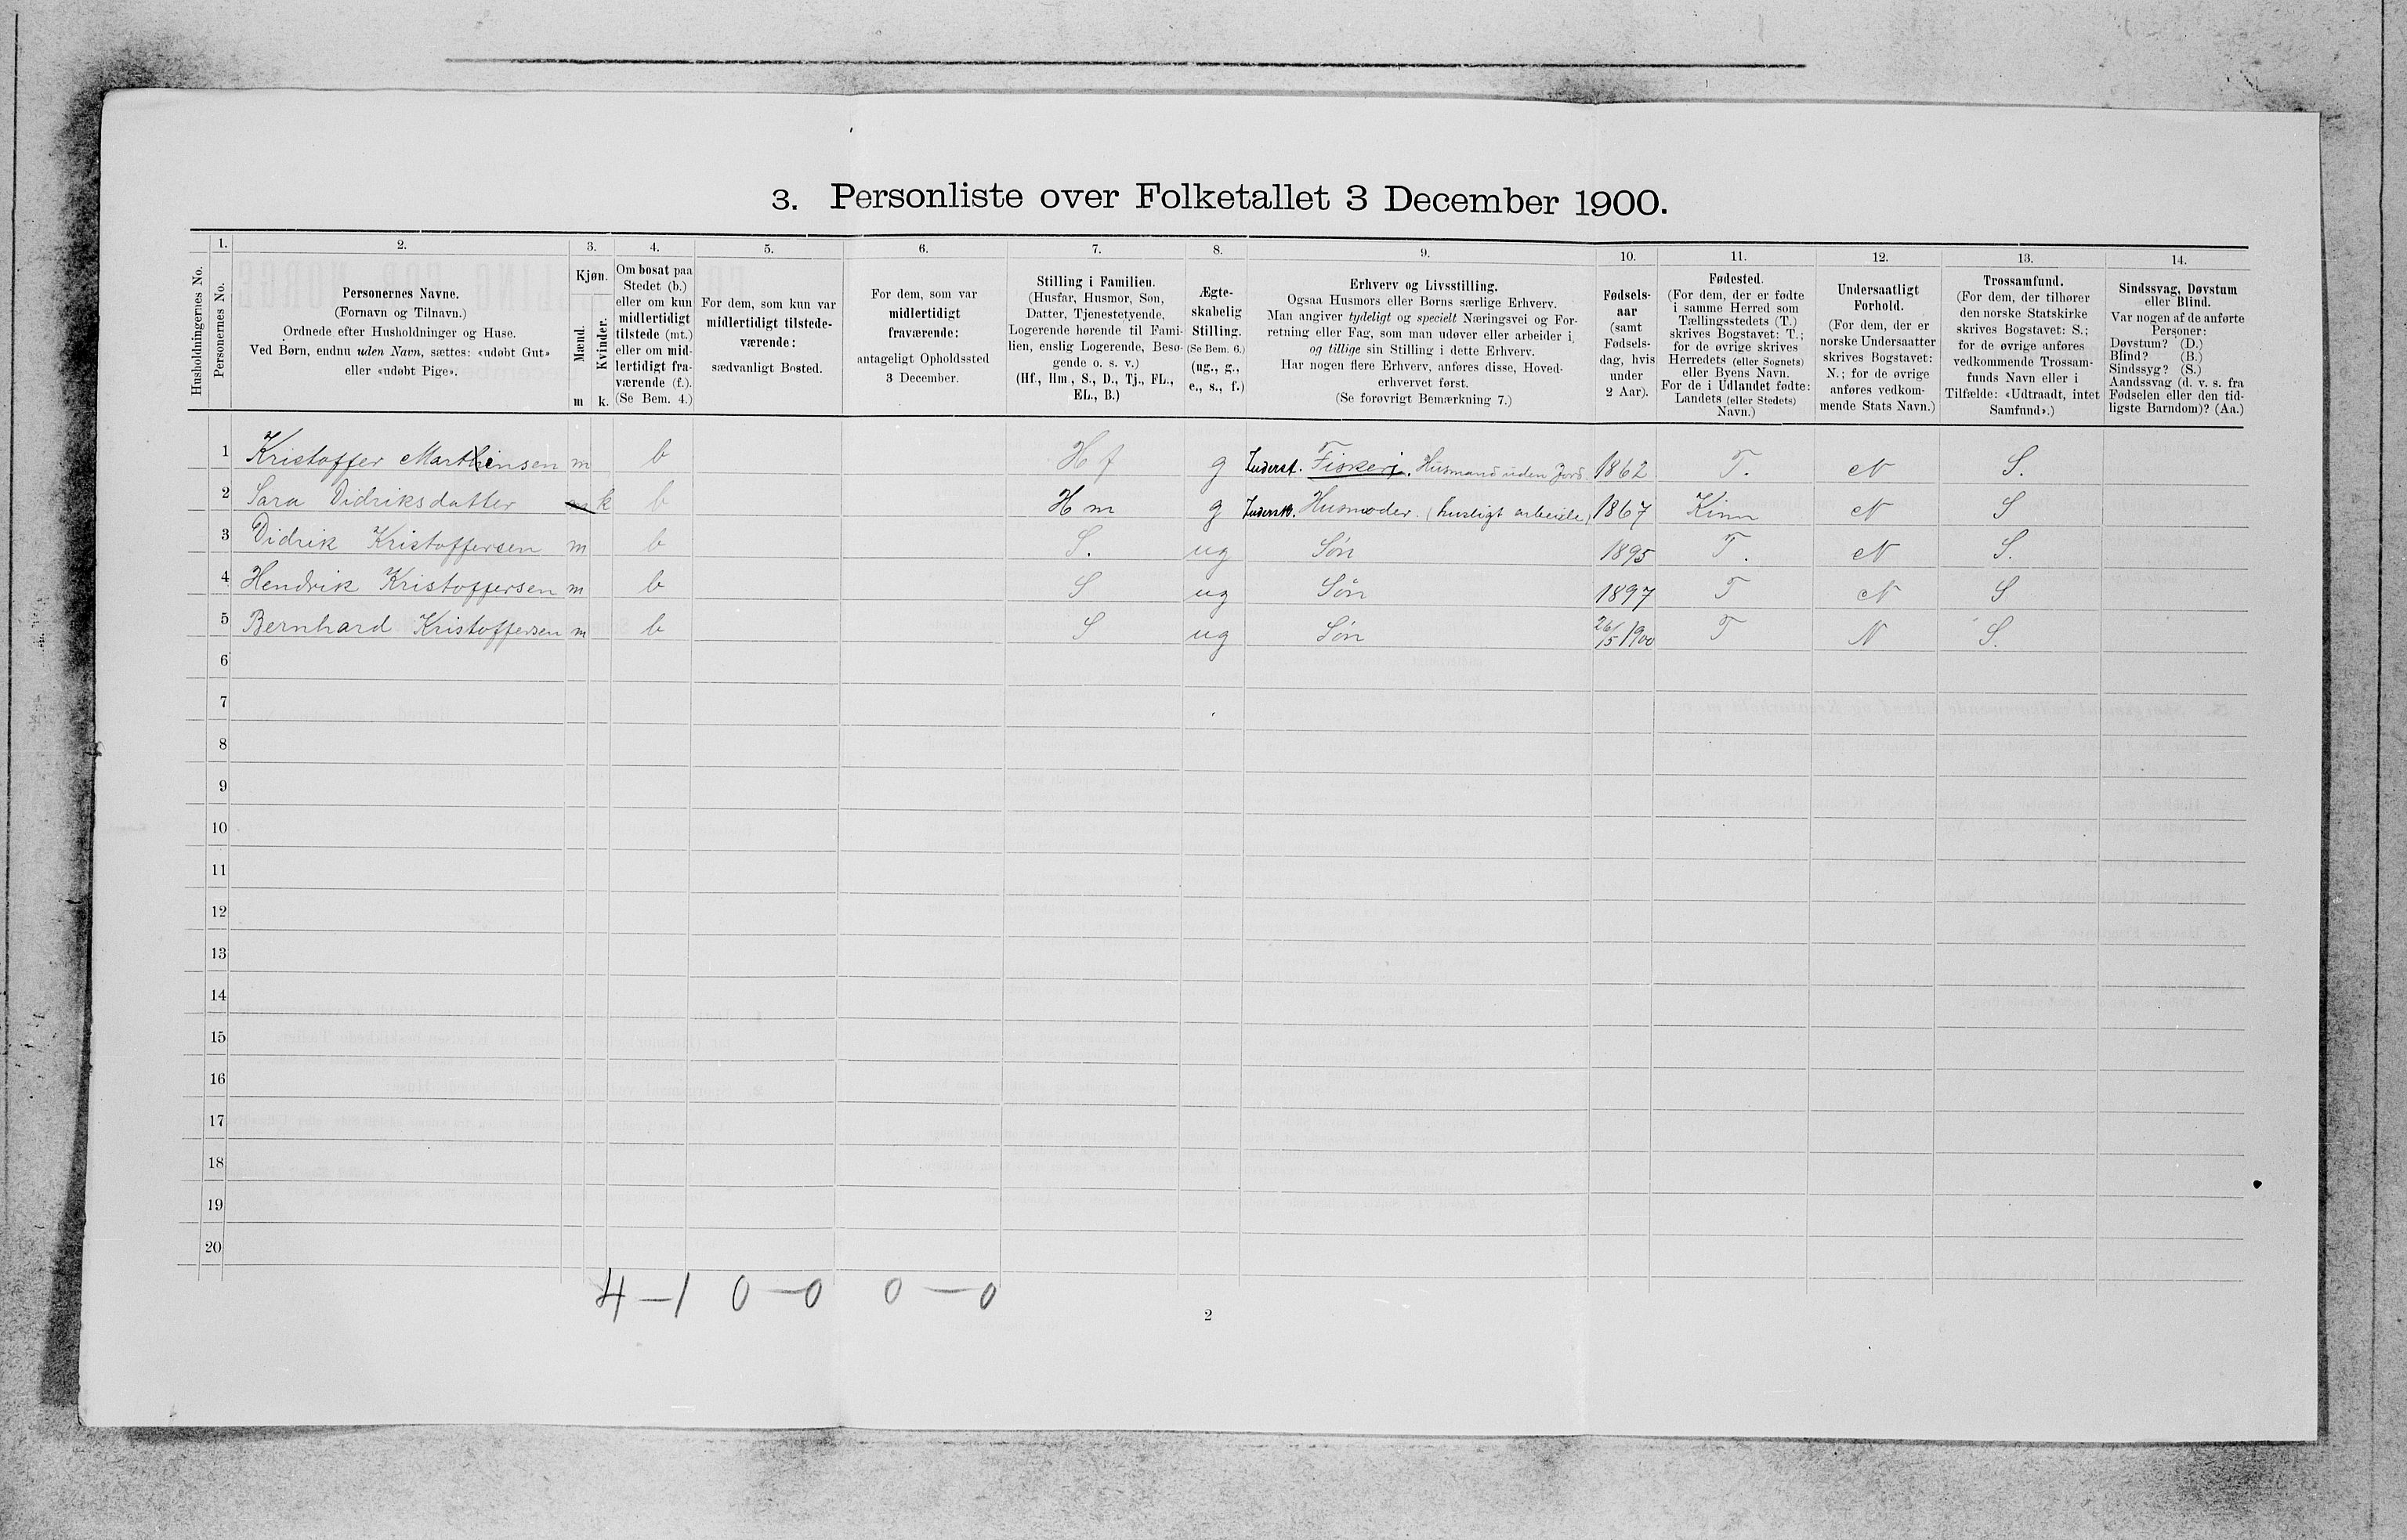 3. Personliste over Folketallet 3 December 1900.
1. 2. 3. 4. 5. 6. 7. 8. 9. 10. 11. 12. 13. 14.
Husholdningernes No.
Personernes No.
Personernes Navne.
(Fornavn og Tilnavn.)
Ordnede efter Husholdninger og Huse.
Ved Børn, endnu uden Navn, sættes: «udøbt Gut»
eller «udøbt Pige».
Kjøn.
Mænd.
Kvinder.
m k.
Om bosat paa
Stedet (b.)
eller om kun
midlertidigt
tilstede (mt.)
eller om mid-
lertidigt fra-
værende (f.).
(Se Bem. 4.)
For dem, som kun var
midlertidigt tilstede-
værende:
sædvanligt Bosted.
For dem, som var
midlertidigt
fraværende:
antageligt Opholdssted
3 December.
Stilling i Familien.
(Husfar, Husmor, Søn,
Datter, Tjenestetyende,
Logerende hørende til Fami-
lien, enslig Logerende, Besø-
gende o. s. v.)
(Hf., Hm., S., D., Tj., FL.,
EL., B.)
Ægte-
skabelig
Stilling.
(Se Bem. 6.)
(ug., g.,
e., s., f.)
Erhverv og Livsstilling.
Ogsaa Husmors eller Børns særlige Erhverv.
Man angiver tydeligt og specielt Næringsvei og For-
retning eller Fag, som man udøver eller arbeider i,
og tillige sin Stilling i dette Erhverv.
Har nogen flere Erhverv, anføres disse, Hoved-
erhvervet først.
(Se forøvrigt Bemærkning 7.)
Fødsels-
aar
(samt
Fødsels-
dag, hvis
under
2 Aar).
Fødested.
(For dem, der er fødte
i samme Herred som
Tællingsstedets (T.)
skrives Bogstavet: T.;
for de øvrige skrives
Herredets (eller Sognets)
eller Byens Navn.
For de i Udlandet fødte:
Landets (eller Stedets)
Navn.)
Undersaatligt
Forhold.
(For dem, der er
norske Undersaatter
skrives Bogstavet:
N.; for de øvrige
anføres vedkom-
mende Stats Navn.)
Trossamfund.
(For dem, der tilhører
den norske Statskirke
skrives Bogstavet: S.;
for de øvrige anføres
vedkommende Trossam-
funds Navn eller i
Tilfælde: «Udtraadt, intet
Samfund».)
Sindssvag, Døvstum
eller Blind.
Var nogen af de anførte
Personer:
Døvstum? (D.)
Blind? (B.)
Sindssyg? (S.)
Aandssvag (d. v. s. fra
Fødselen eller den tid-
ligste Barndom)? (Aa.)
1 Kristoffer Marthinsen m b Hf g Inderst. Fiskeri. Husmand uden Jord. 1862 T. N S.
2 Sara Didriksdatter k b Hm g Husmoder. (husligt arbeide) 1867 Kinn N S
3 Didrik Kristoffersen m b S. ug Søn 1895 T. N S.
4 Hendrik Kristoffersen m b S ug Søn 1897 T N S
5 Bernhard Kristoffersen m b S ug Søn 26/5 1900 T N S.
6
7
8
9
10
11
12
13
14
15
16
17
18
19
20
4 – 1 0 – 0 0 – 0
2